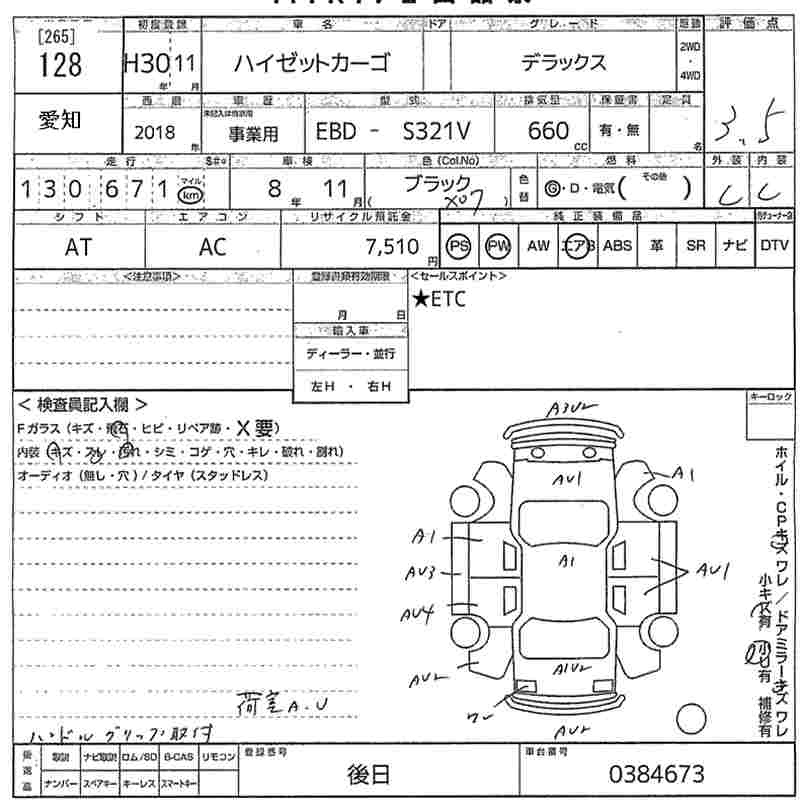 [265]
128
初度登録 車名 ドア グレード 駆動 評価点
H30 11 ハイゼットカーゴ デラックス 2WD・4WD
年 月
愛知
西暦 車歴 型式 排気量 保証書 定員
2018 年 事業用 EBD - S321V 660 cc 有・無 名
3.5
走行 車検 色(Col.No) 燃料 外装 内装
130671 マイル km 8年 11月 ブラック ( X07 ) 色替 G・D・電気( その他 ) C C
シフト エアコン リサイクル預託金 純正装備品
AT AC 7,510円 PS PW AW エアB ABS 革 SR ナビ DTV
<注意事項> 登録書類有効期限 <セールスポイント>
月 日 ★ETC
輸入車
ディーラー・並行
左H ・ 右H
< 検査員記入欄 >
Fガラス (キズ・飛石・ヒビ・リペア跡・X要)
内装 (キズ・スレ・汚れ・シミ・コゲ・穴・キレ・破れ・割れ)
オーディオ (無し・穴) / タイヤ (スタッドレス)
キーロック
A3U2
AU1
A1
A1
AU3
A1
AU1
AU4
AU2
A1U2
ワレ
AU2
ホイル・CPキズ ワレ / ドアミラーキズ ワレ
小キズ有 小U有 補修有
荷室A.U
ハンドルグリップ取付
後送品 取説 ナビ取説 ロム/SD B-CAS リモコン 登録番号 車台番号
ナンバー スペアキー キーレス スマートキー 後日 0384673